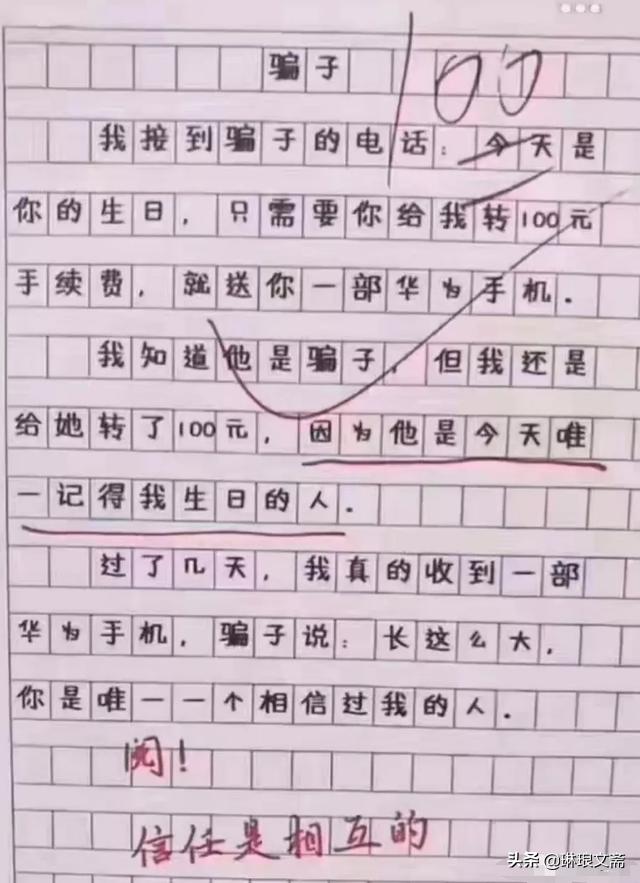 骗子 100
我接到骗子的电话：今天是
你的生日，只需要你给我转100元
手续费，就送你一部华为手机．
我知道他是骗子，但我还是
给她转了100元，因为他是今天唯
一记得我生日的人．
过了几天，我真的收到一部
华为手机，骗子说：长这么大，
你是唯一一个相信过我的人．
阅！
信任是相互的
头条 @琳琅文斋